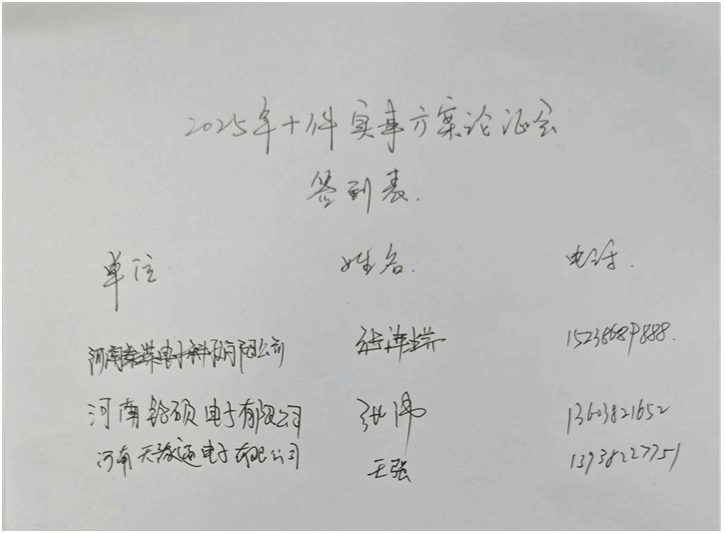 2025年十件实事方案论证会
签到表.
单位 姓名. 电话.
河南 电子科技有限公司 15238689888.
河南铃硕电子有限公司 张伟 13603821652
河南天 电子有限公司 王强 13938227751